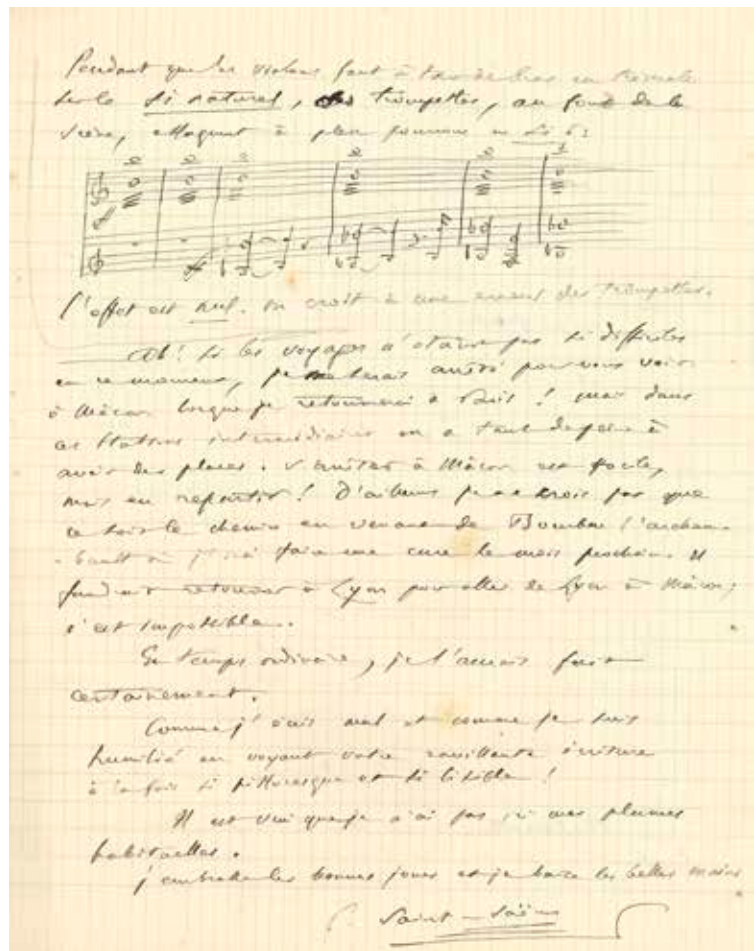 Pendant que les violons font à tour de bras un tremolo
sur le si naturel, des trompettes, au fond de la
scène, attaquent à plein poumons un Si b :
l'effet est nul. On croit à une erreur des trompettes.
Ah ! si les voyages n'étaient pas si difficiles
en ce moment, je me serais arrêté pour vous voir
à Mâcon lorsque je retournerai à Paris ! mais dans
ces stations intermédiaires on a tant de peine à
avoir des places. S'arrêter à Mâcon est facile,
mais en repartir ! D'ailleurs je ne crois pas que
ce soit le chemin en venant de Bourbon l'archam-
-bault où j'irai faire une cure le mois prochain. Il
faudrait retourner à Lyon pour aller de Lyon à Mâcon ;
c'est impossible.
En temps ordinaire, je l'aurais fait
certainement.
Comme j'écris mal et comme je suis
humilié en voyant votre écriture
à la fois si pittoresque et si lisible !
Il est vrai que je n'ai pas ici mes plumes
habituelles.
J'embrasse les bonnes joues et je baise les belles mains
C. Saint-Saëns